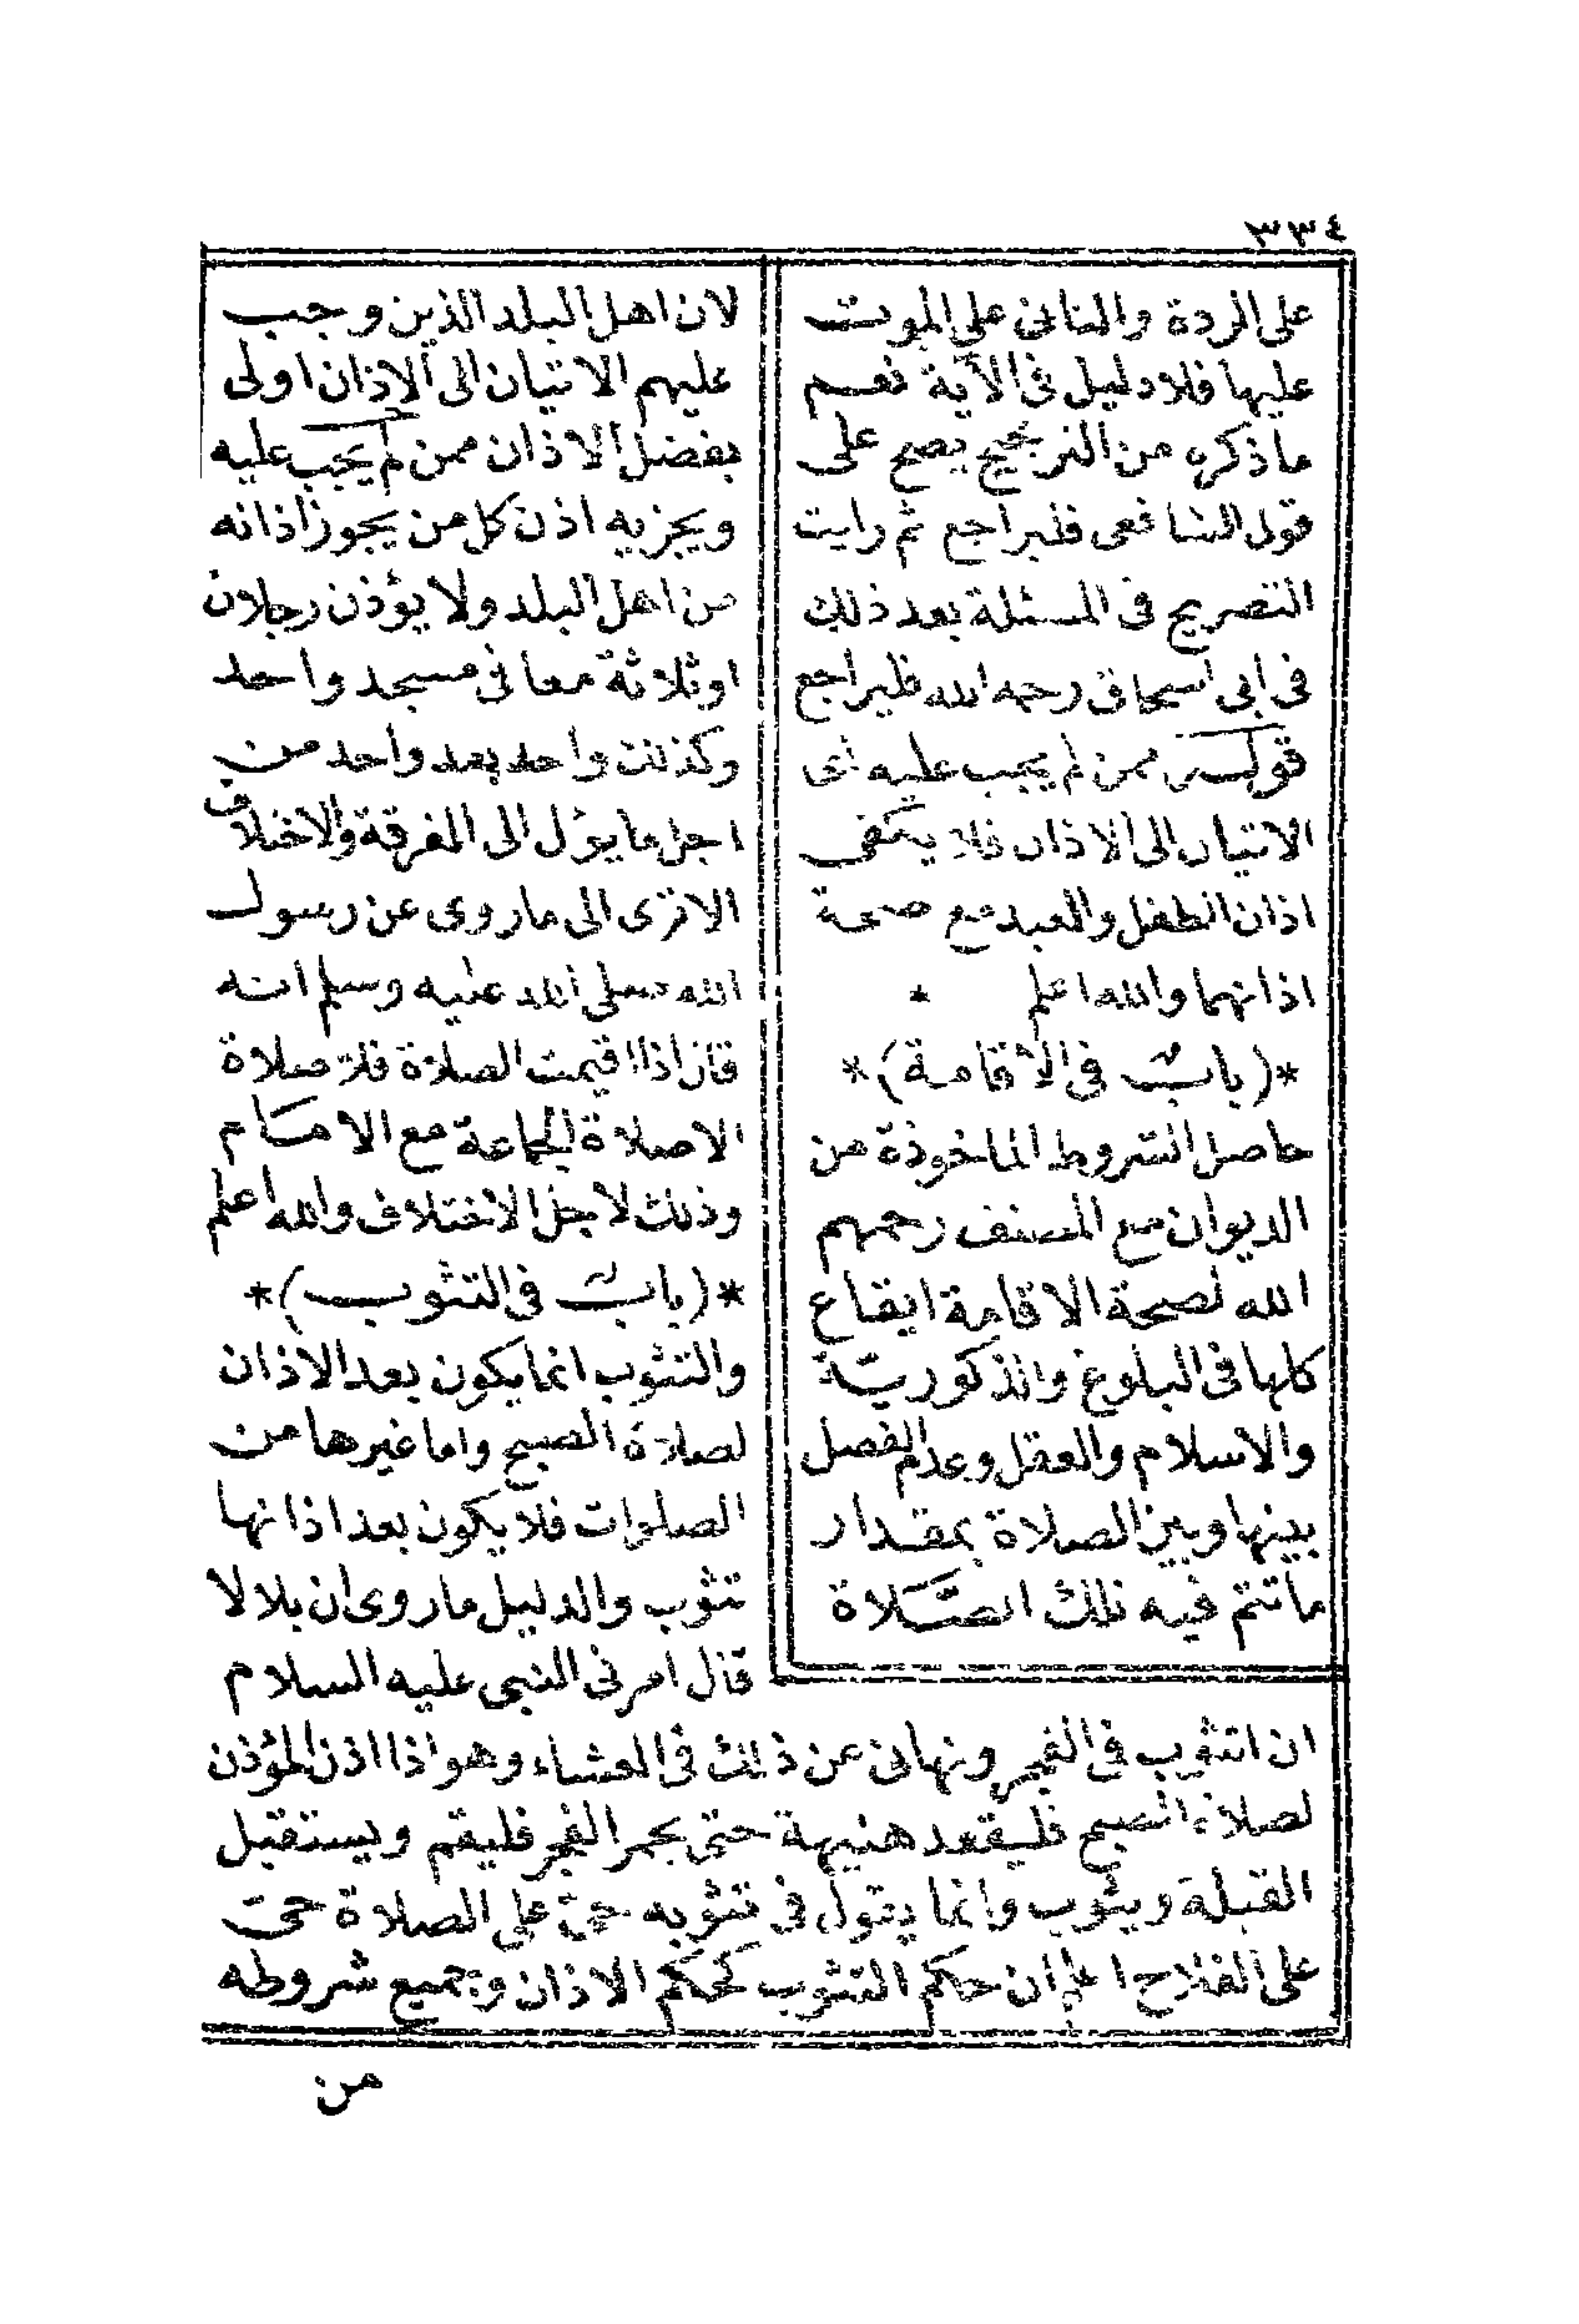 ٣٣٤
على الردة والثانى على الموت
عليها فلا دليل فى الآية نعم
ما ذكره من الترجيح يصح على
قول الشافعى فليراجع ثم رايت
التصريح فى المسئلة بعد ذلك
فى ابى اسحاق رحمه الله فليراجع
قوله ممن لم يجب عليه اى
الاتيان الى الاذان فلا يكفى
اذان الطفل والعبد مع صحة
اذانهما والله اعلم *
*(باب فى الاقامة)*
حاصل الشروط الماخوذة من
الديوان مع المصنف رحمهم
الله لصحة الاقامة ايقاع
كلها فى البلوغ والذكورية
والاسلام والعقل وعدم الفصل
بينها وبين الصلاة بمقدار
ما تتم فيه تلك الصلاة
لان اهل البلد الذين وجب
عليهم الاتيان الى الاذان اولى
بفضل الاذان ممن لم يجب عليه
ويجزيه اذن كل من يجوز اذانه
من اهل البلد ولا يؤذن رجلان
او ثلاثة معا فى مسجد واحد
وكذلك واحد بعد واحد من
اجل ما يؤل الى الفرقة والاختلاف
الا ترى الى ما روى عن رسول
الله صلى الله عليه وسلم انه
قال اذا اقيمت الصلاة فلا صلاة
الا صلاة الجماعة مع الامام
وذلك لاجل الاختلاف والله اعلم
*(باب فى التثوب)*
والتثوب انما يكون بعد الاذان
لصلاة الصبح واما غيرها من
الصلوات فلا يكون بعد اذانها
تثوب والدليل ما روى ان بلالا
قال امرنى النبى عليه السلام
ان اثوب فى الفجر ونهانى عن ذلك فى العشاء وهو اذا اذن المؤذن
لصلاة الصبح فليقعد هنيهة حتى يحمر الفجر فليقم ويستقبل
القبلة ويثوب وانما يقول فى تثوبه حى على الصلاة حى
على الفلاح اعلم ان حكم التثوب كحكم الاذان وجميع شروطه
من